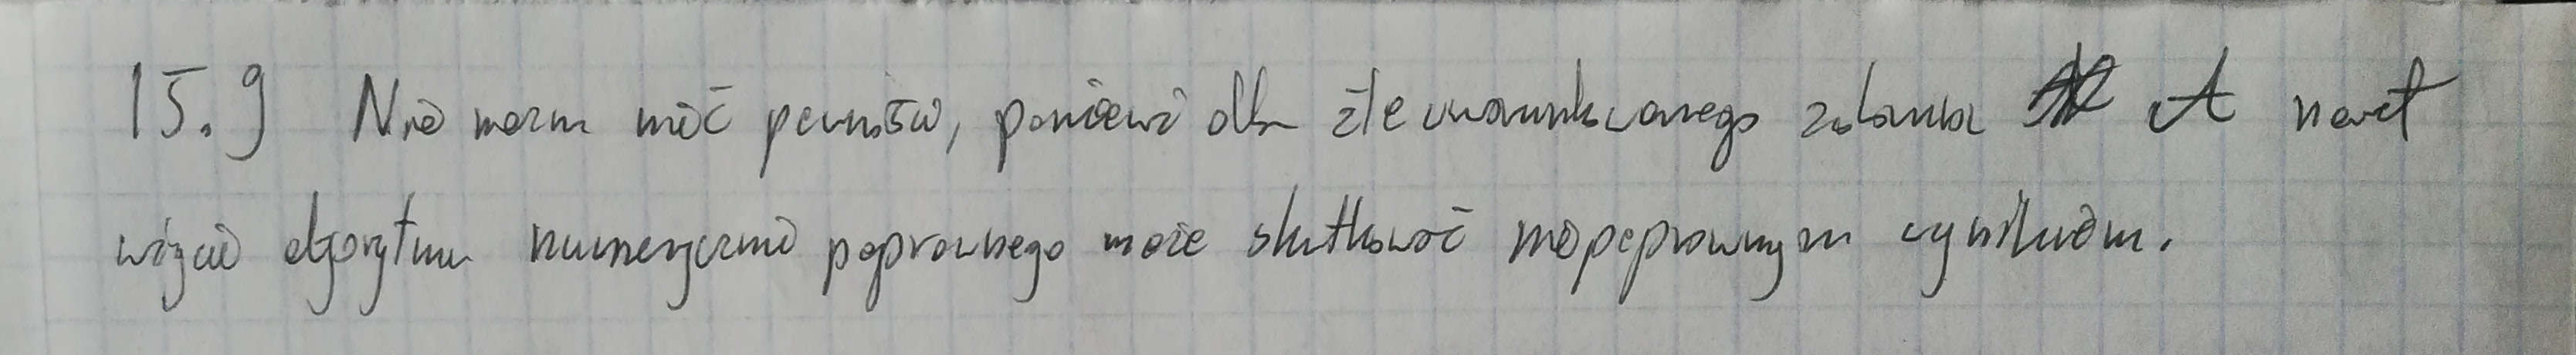 15.9 Nie mogę mieć pewności, ponieważ dla źle uwarunkowanego zadania A nawet
wzięcie algorytmu numerycznie poprawnego może skutkować niepoprawnym wynikiem.